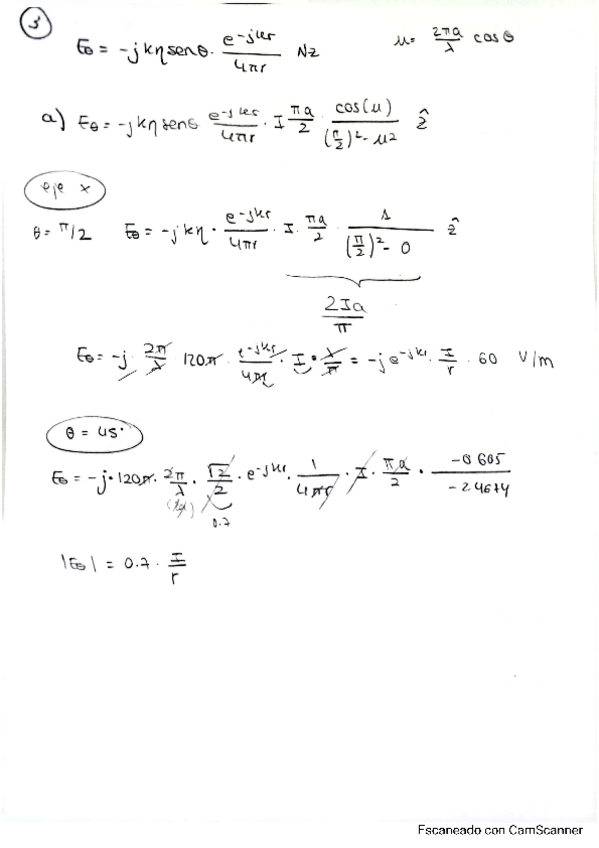 3
Eθ = -jkη senθ · e^-jkr / 4πr Nz    μ = 2πa/λ cos θ
a) Eθ = -jkη senθ e^-jkr / 4πr · I πa/2 · cos(μ) / (π/2)² - μ² ẑ
eje x
θ = π/2    Eθ = -jkη · e^-jkr / 4πr · I · πa/2 · 1 / (π/2)² - 0 ẑ
2Ia/π
Eθ = -j · 2π/λ 120π · e^-jkr / 4πr · I · λ/π = -j e^-jkr · I/r · 60 V/m
θ = 45°
Eθ = -j · 120π · 2π/λ · √2/2 · e^-jkr · 1/4πr · I · πa/2 · -0.605 / -2.4674
0.7
|Eθ| = 0.7 · I/r
Escaneado con CamScanner